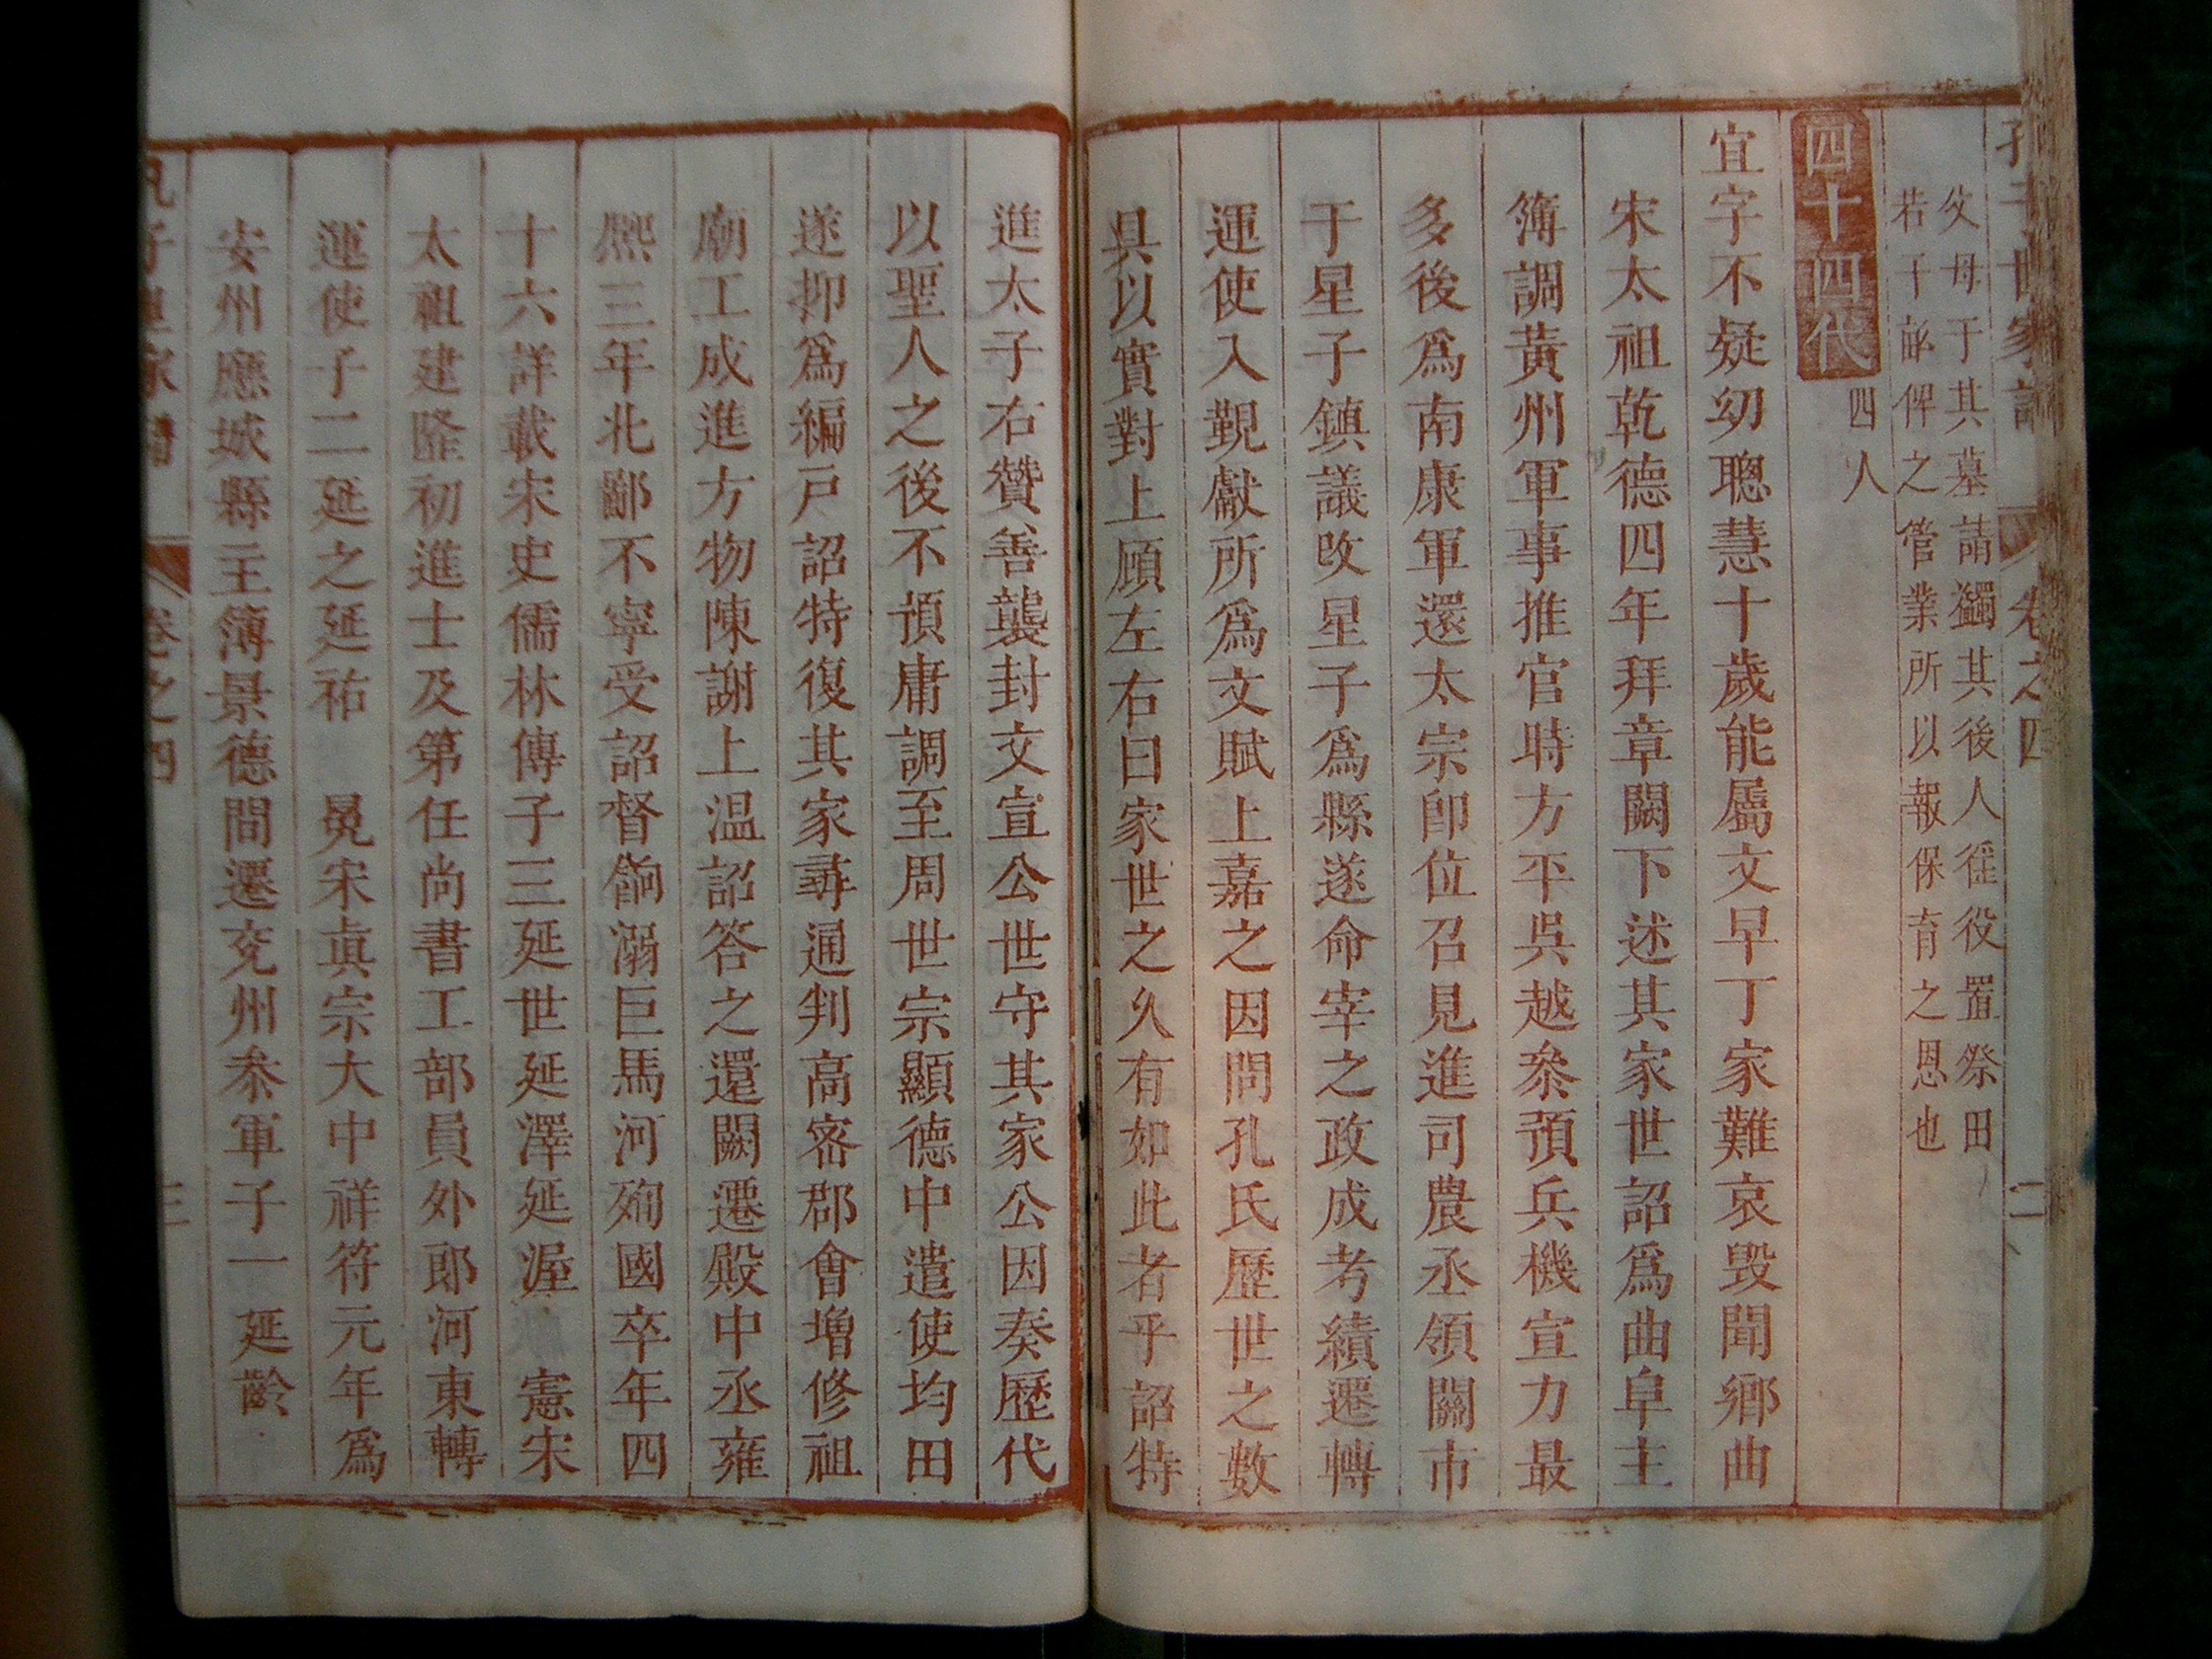 父母于其墓請蠲其後人徭役置祭田
若干畝俾之管業所以報保育之恩也
四十四代 四人
宜字不疑幼聰慧十歲能屬文早丁家難哀毀聞鄉曲
宋太祖乾德四年拜章闕下述其家世詔爲曲阜主
簿調黃州軍事推官時方平吳越叅預兵機宣力最
多後爲南康軍還太宗卽位召見進司農丞領關市
于星子鎮議改星子爲縣遂命宰之政成考績遷轉
運使入覲獻所爲文賦上嘉之因問孔氏歷世之數
具以實對上顧左右曰家世之久有如此者乎詔特
進太子右贊善襲封文宣公世守其家公因奏歷代
以聖人之後不預庸調至周世宗顯德中遣使均田
遂抑爲編戸詔特復其家尋通判高密郡會增修祖
廟工成進方物陳謝上温詔答之還闕遷殿中丞雍
熙三年北鄙不寧受詔督餉溺巨馬河殉國卒年四
十六詳載宋史儒林傳子三延世延澤延渥 憲宋
太祖建隆初進士及第任尚書工部員外郎河東轉
運使子二延之延祐 冕宋眞宗大中祥符元年爲
安州應城縣主簿景德間遷兖州叅軍子一延齡
卷之四
三